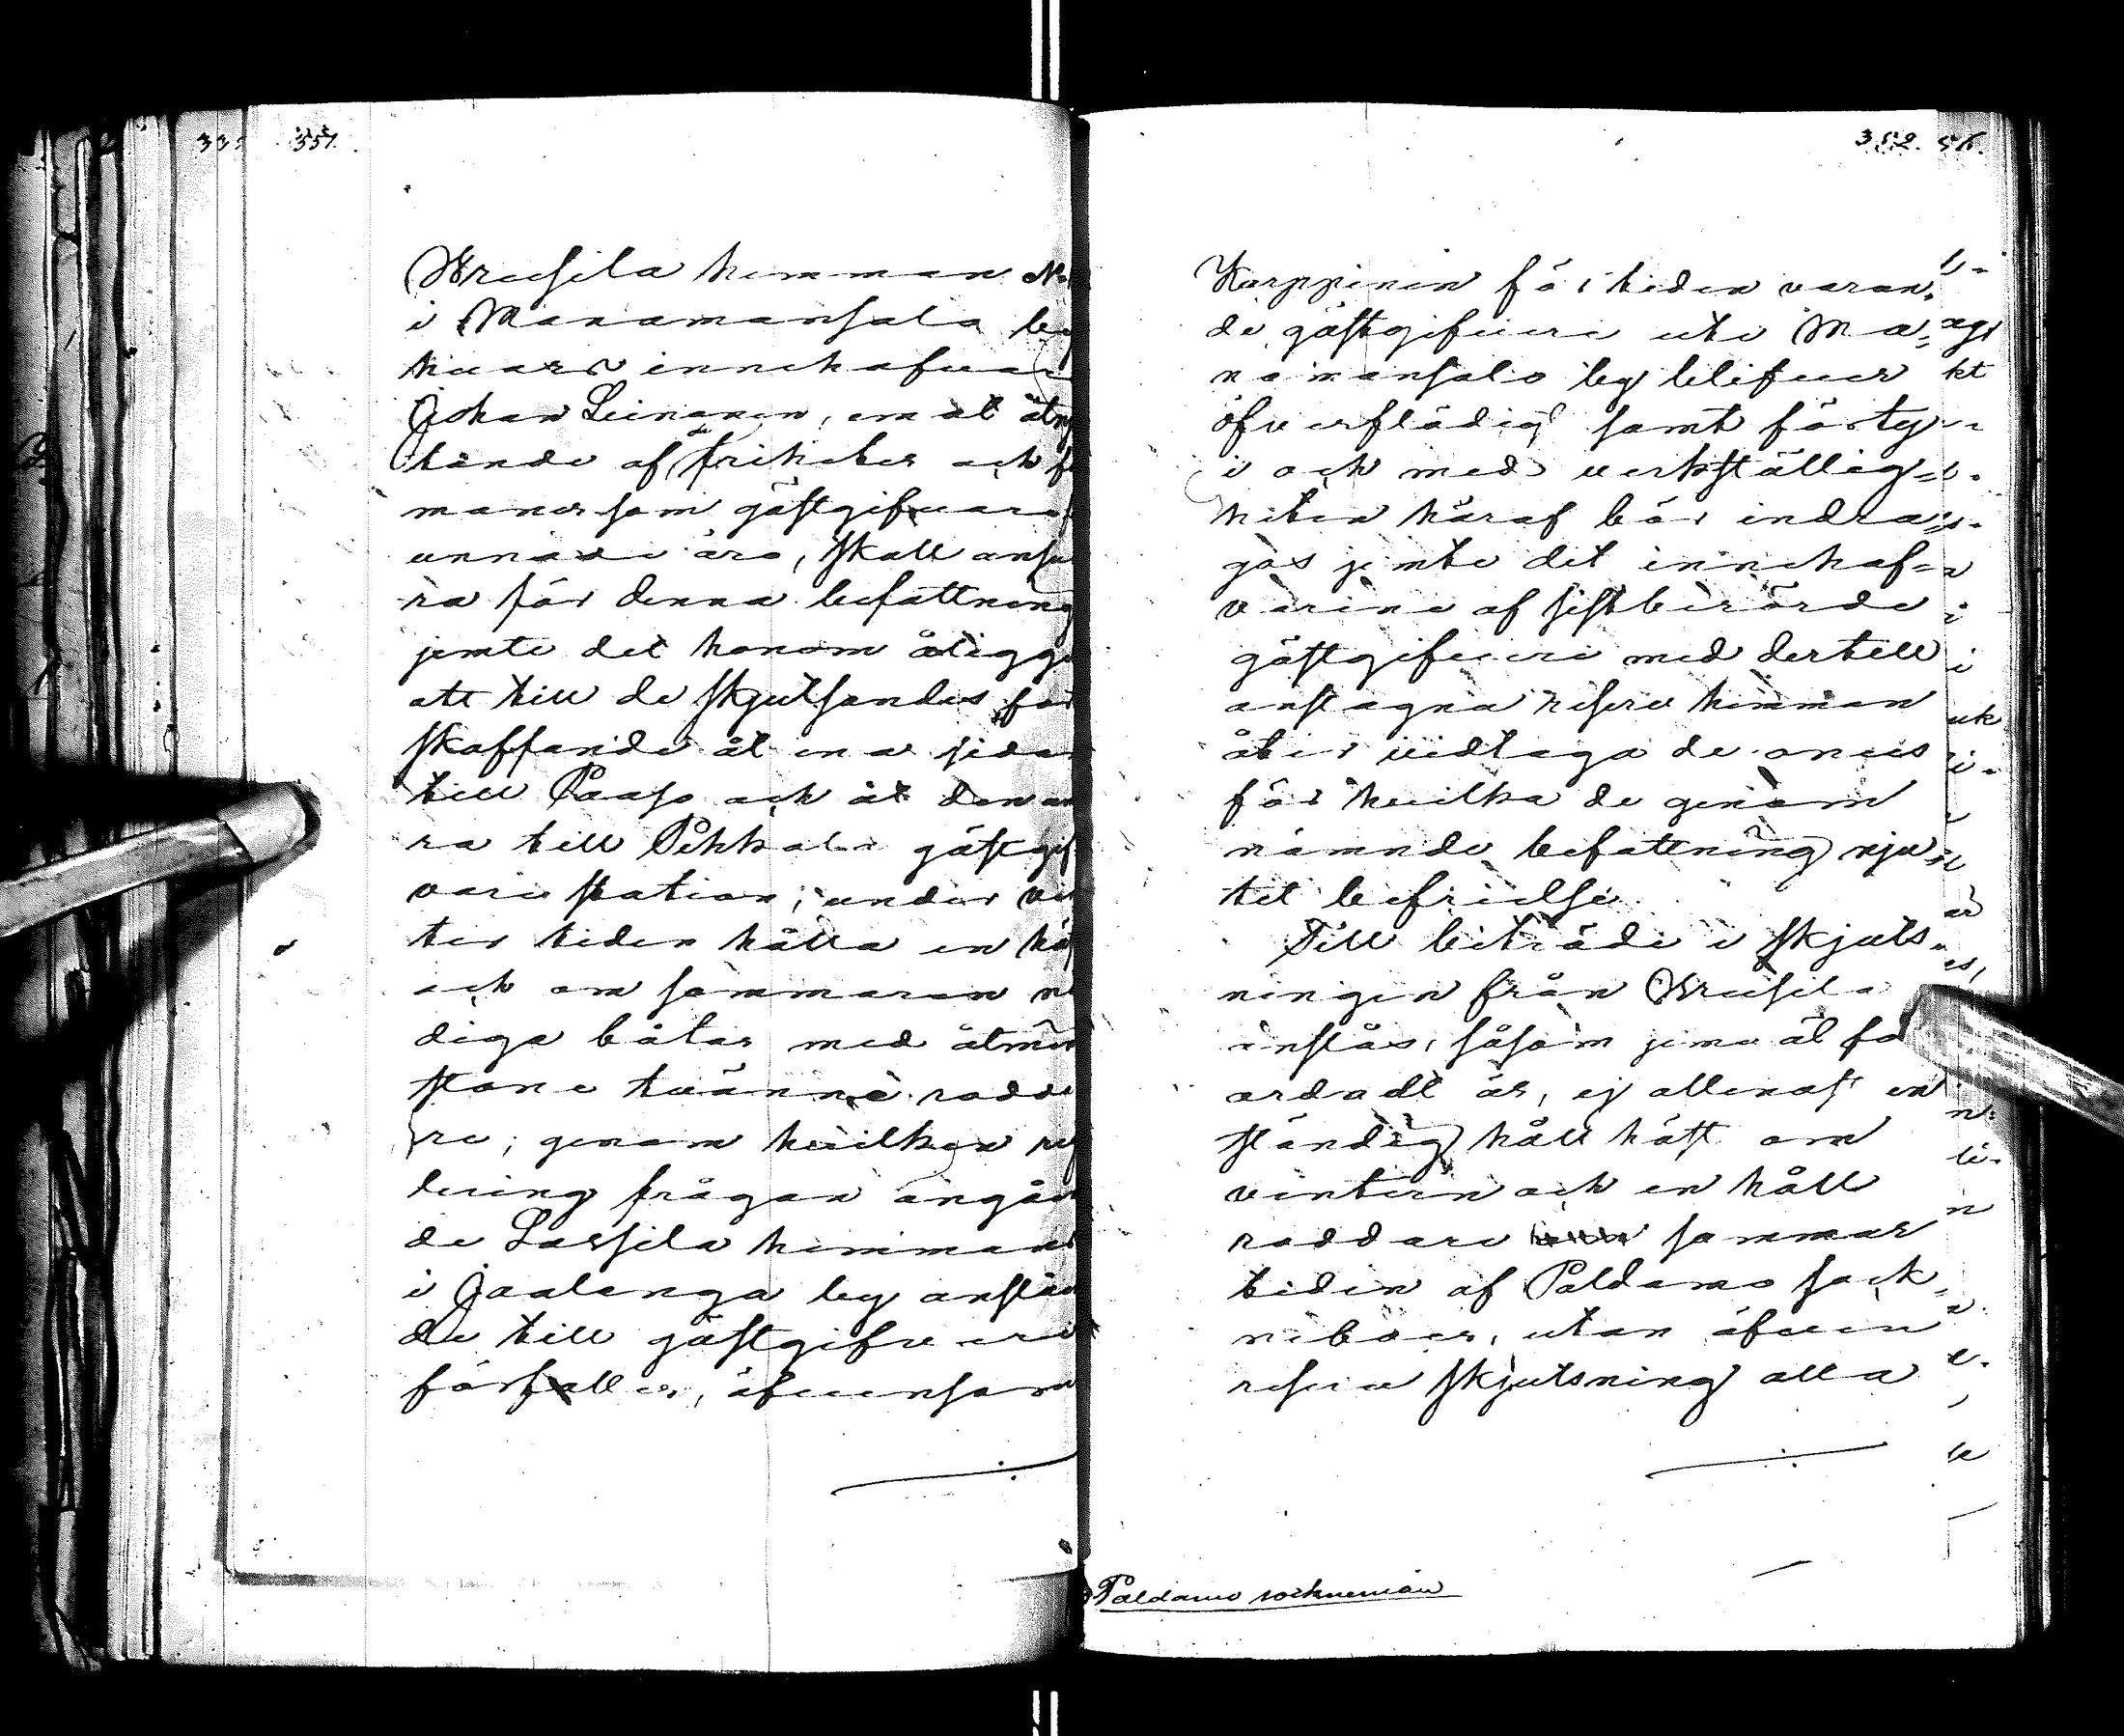 351.
Wreesila hemman No
i Manamansalo by
hvars innehafvar
Johan Leinonen, emot åtnj
tande af de friheter och f
moner som gästgifvare
unnade äro, skall ansva
ra för denna befattning
jemte det honom åligge
att till de skjutsandes for
skaffande åt ena sidan
till Paaso och åt den an
ra till Pehkola gästgif
vare station, under vin
ter tiden hålla en häst
och om sommaren nö
diga båtar med åtmin
stone tvänne rodda
re; genom hvilken reg
lering frågan angåen
de Lassila hemmans
i Jaalanga by anslåen
de till gästgifveri
förfaller, äfvensom
352.
Karppinen för tiden varan-
de gästgifveri uti Ma-
namansalo by blifver
öfverflödigt samt förty
i och med verkställig-
heten häraf bör indra-
gas jemte det innehaf-
varene af sistberörde
gästgifveri med dertill
anslagna reserv hemman
åter vidtaga de onus
för hvilka de genom
nämnde befattning nju-
tit befrielse.
Till biträde i skjuts-
ningen från Wreesila
anslås, såsom jemväl fö
ordadt är, ej allenast en
ständig håll häst om
vintern och en håll
roddare sommar
tiden af Paldamo sock-
neboer, utan äfven
reserv skjutsning alla
Paldamo sockneman